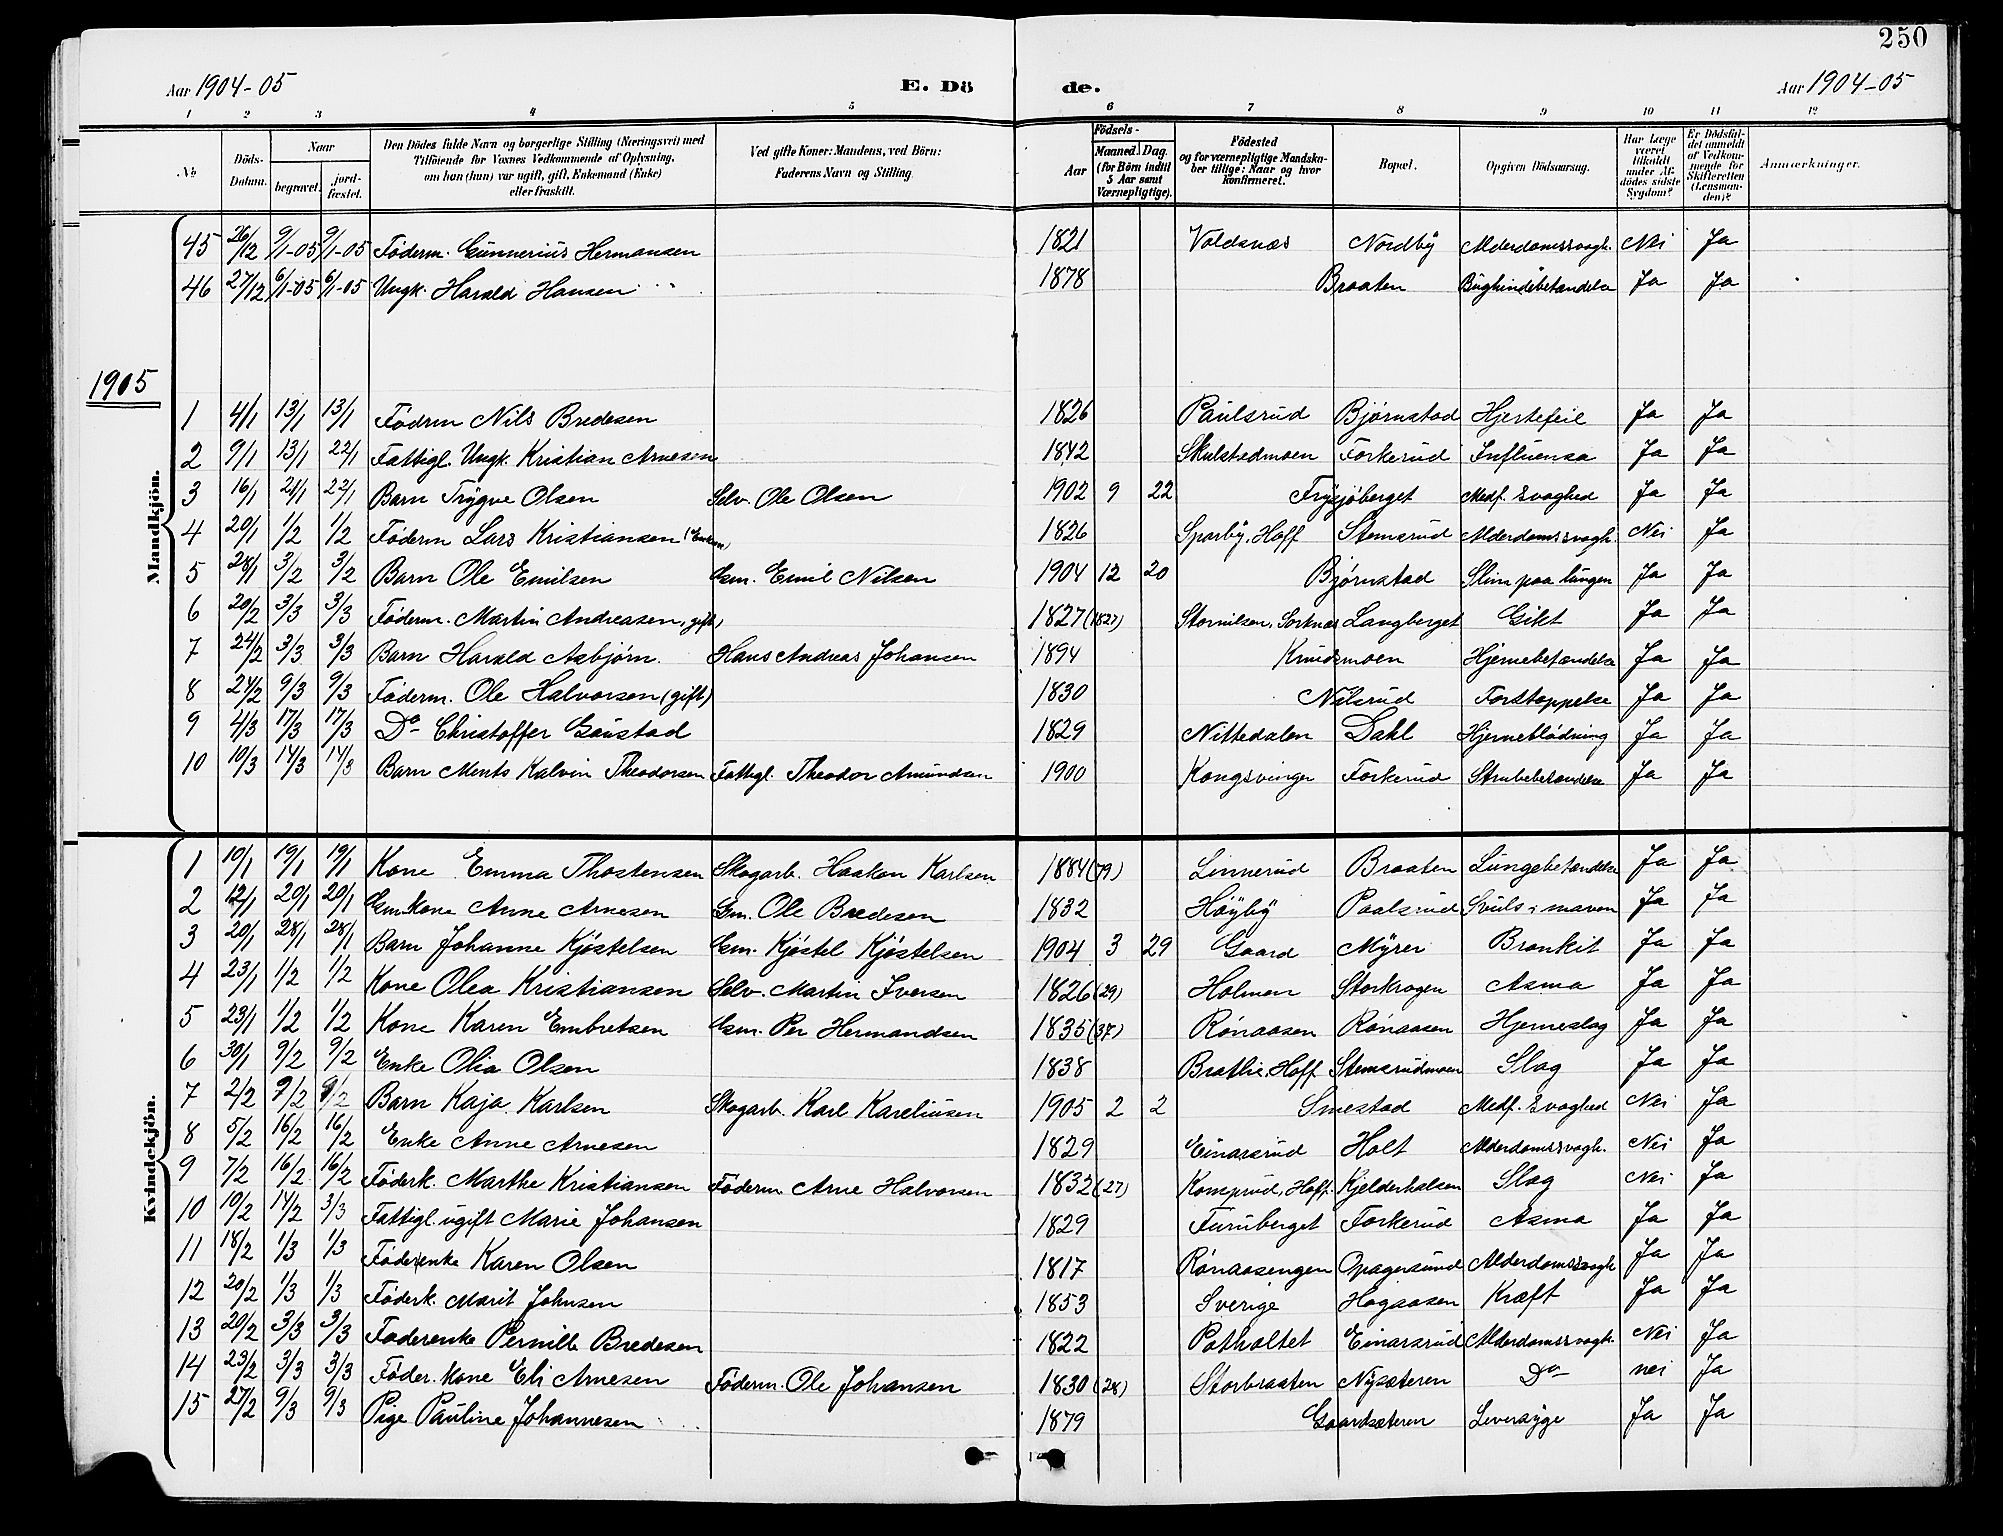 250
Aar 1904-05 E. Dö de. Aar 1904-05
1 2 3 4 5 6 7 8 9 10 11 12
No Döds-Datum. Naar begravet. jord-fæstet. Den Dödes fulde Navn og borgerlige Stilling (Næringsvei) med Tilföiende for Voxnes Vedkommende af Oplysning, om han (hun) var ugift, gift, Enkemand (Enke) eller fraskilt. Ved gifte Koner: Mandens, ved Börn: Faderens Navn og Stilling. Födsels- Aar Maaned. Dag. (for Börn indtil 5 Aar samt Værnepligtige). Födested og for værnepligtige Mandskaber tillige: Naar og hvor konfirmeret. Bopæl. Opgiven Dödsaarsag. Har Læge været tilkaldt under Afdödes sidste Sygdom? Er Dödsfaldet anmeldt af Vedkommende for Skifteretten (Lensmanden)? Anmærkninger.
45 26/12 9/1-05 9/1-05 Føderm. Gunnerius Hermansen 1821 Voldsnæs Nordby Alderdomssvagh. Nei Ja
46 27/12 6/1-05 6/1-05 Ungk. Harald Hansen 1878 Braaten Bughindebetændelse Ja Ja
1905
Mandkjön.
1 4/1 13/1 13/1 Fødrm Nils Bredesen 1826 Paulsrud Bjørnstad Hjertefeil Ja Ja
2 9/1 13/1 22/1 Fattigl. Ungk. Kristian Arnesen 1842 Skulstedmoen Forkerud Influensa Ja Ja
3 16/1 21/1 22/1 Barn Trygve Olsen Selv. Ole Olsen 1902 9 22 Frysjøberget Medf. Svaghed Ja Ja
4 20/1 1/2 1/2 Føderm Lars Kristiansen (Enkem) 1826 Sparby, Hoff Stemsrud Alderdomssvagh. Nei Ja
5 28/1 3/2 3/2 Barn Ole Emilsen Gm. Emil Nilsen 1904 12 20 Bjørnstad Slim paa lungen Ja Ja
6 20/2 3/3 3/3 Føderm. Martin Andreasen, gift) 1827 (1827) Stornilsen, Sorknæs Langberget Gikt Ja Ja
7 24/2 3/3 3/3 Barn Harald Asbjørn. Hans Andreas Johansen 1894 Knudsmoen Hjernebetændelse Ja Ja
8 24/2 9/3 9/3 Føderm. Ole Halvorsen (gift) 1830 Nilsrud Forstoppelse Ja Ja
9 4/3 17/3 17/3 Do Christoffer Gaustad 1829 Nittedalen Dahl Hjerneblødning Ja Ja
10 10/3 14/3 14/3 Barn Ments Kalvin Theodorsen Fattigl. Theodor Amundsen 1900 Kongsvinger Forkerud Strubebetændelse Ja Ja
Kvindekjön.
1 10/1 19/1 19/1 Kone Emma Thostensen Skogarb. Haakon Karlsen 1884 (79) Linnerud Braaten Lungebetændelse Ja Ja
2 12/1 20/1 20/1 Gm.kone Anne Arnesen Gm. Ole Bredesen 1832 Høyby Paalsrud Svuls i maven Ja Ja
3 20/1 28/1 28/1 Barn Johanne Kjøstelsen Gm. Kjøstel Kjøstelsen 1904 3 29 Gaard Myrer Bronkit Ja Ja
4 23/1 1/2 1/2 Kone Olea Kristiansen Selv. Martin Iversen 1826 (29) Holmen Storkrogen Asma Ja Ja
5 23/1 1/2 1/2 Kone Karen Embretsen Gm. Per Hermandsen 1835 (37) Rønaasen Rønaasen Hjerneslag Ja Ja
6 30/1 9/2 9/2 Enke Olia Olsen 1838 Brathe, Hoff Stemsrudmoen Slag Ja Ja
7 2/2 9/2 9/2 Barn Kaja Karlsen Skogarb. Karl Kareliusen 1905 2 2 Smestad Medf. Svaghed Nei Ja
8 5/2 16/2 16/2 Enke Anne Arnesen 1829 Einarsrud Holt Alderdomssvagh. Nei Ja
9 7/2 16/2 16/2 Føderk. Marthe Kristiansen Føderm Arne Halvorsen 1832 (27) Komprud, Hoff. Kjelderhalsen Slag Nei Ja
10 10/2 14/2 3/3 Fattigl. ugift Marie Johansen 1829 Furuberget Forkerud Asma Ja Ja
11 18/2 1/3 1/3 Føderenke Karen Olsen 1817 Rønaasengen Opagersund Alderdomssvagh Ja Ja
12 20/2 1/3 1/3 Føderk. Marit Johnsen 1853 Sverige Hogaasen Kræft Ja Ja
13 20/2 3/3 3/3 Føderenke Pernille Bredesen 1822 Potholtet Einarsrud Alderdomssvagh. Nei Ja
14 23/2 3/3 3/3 Føder.kone Eli Arnesen Føderm. Ole Johansen 1830 (28) Storbraaten Nysæteren Do nei Ja
15 27/2 9/3 9/3 Pige Pauline Johannesen 1879 Gaardsæteren Leversyge Ja Ja